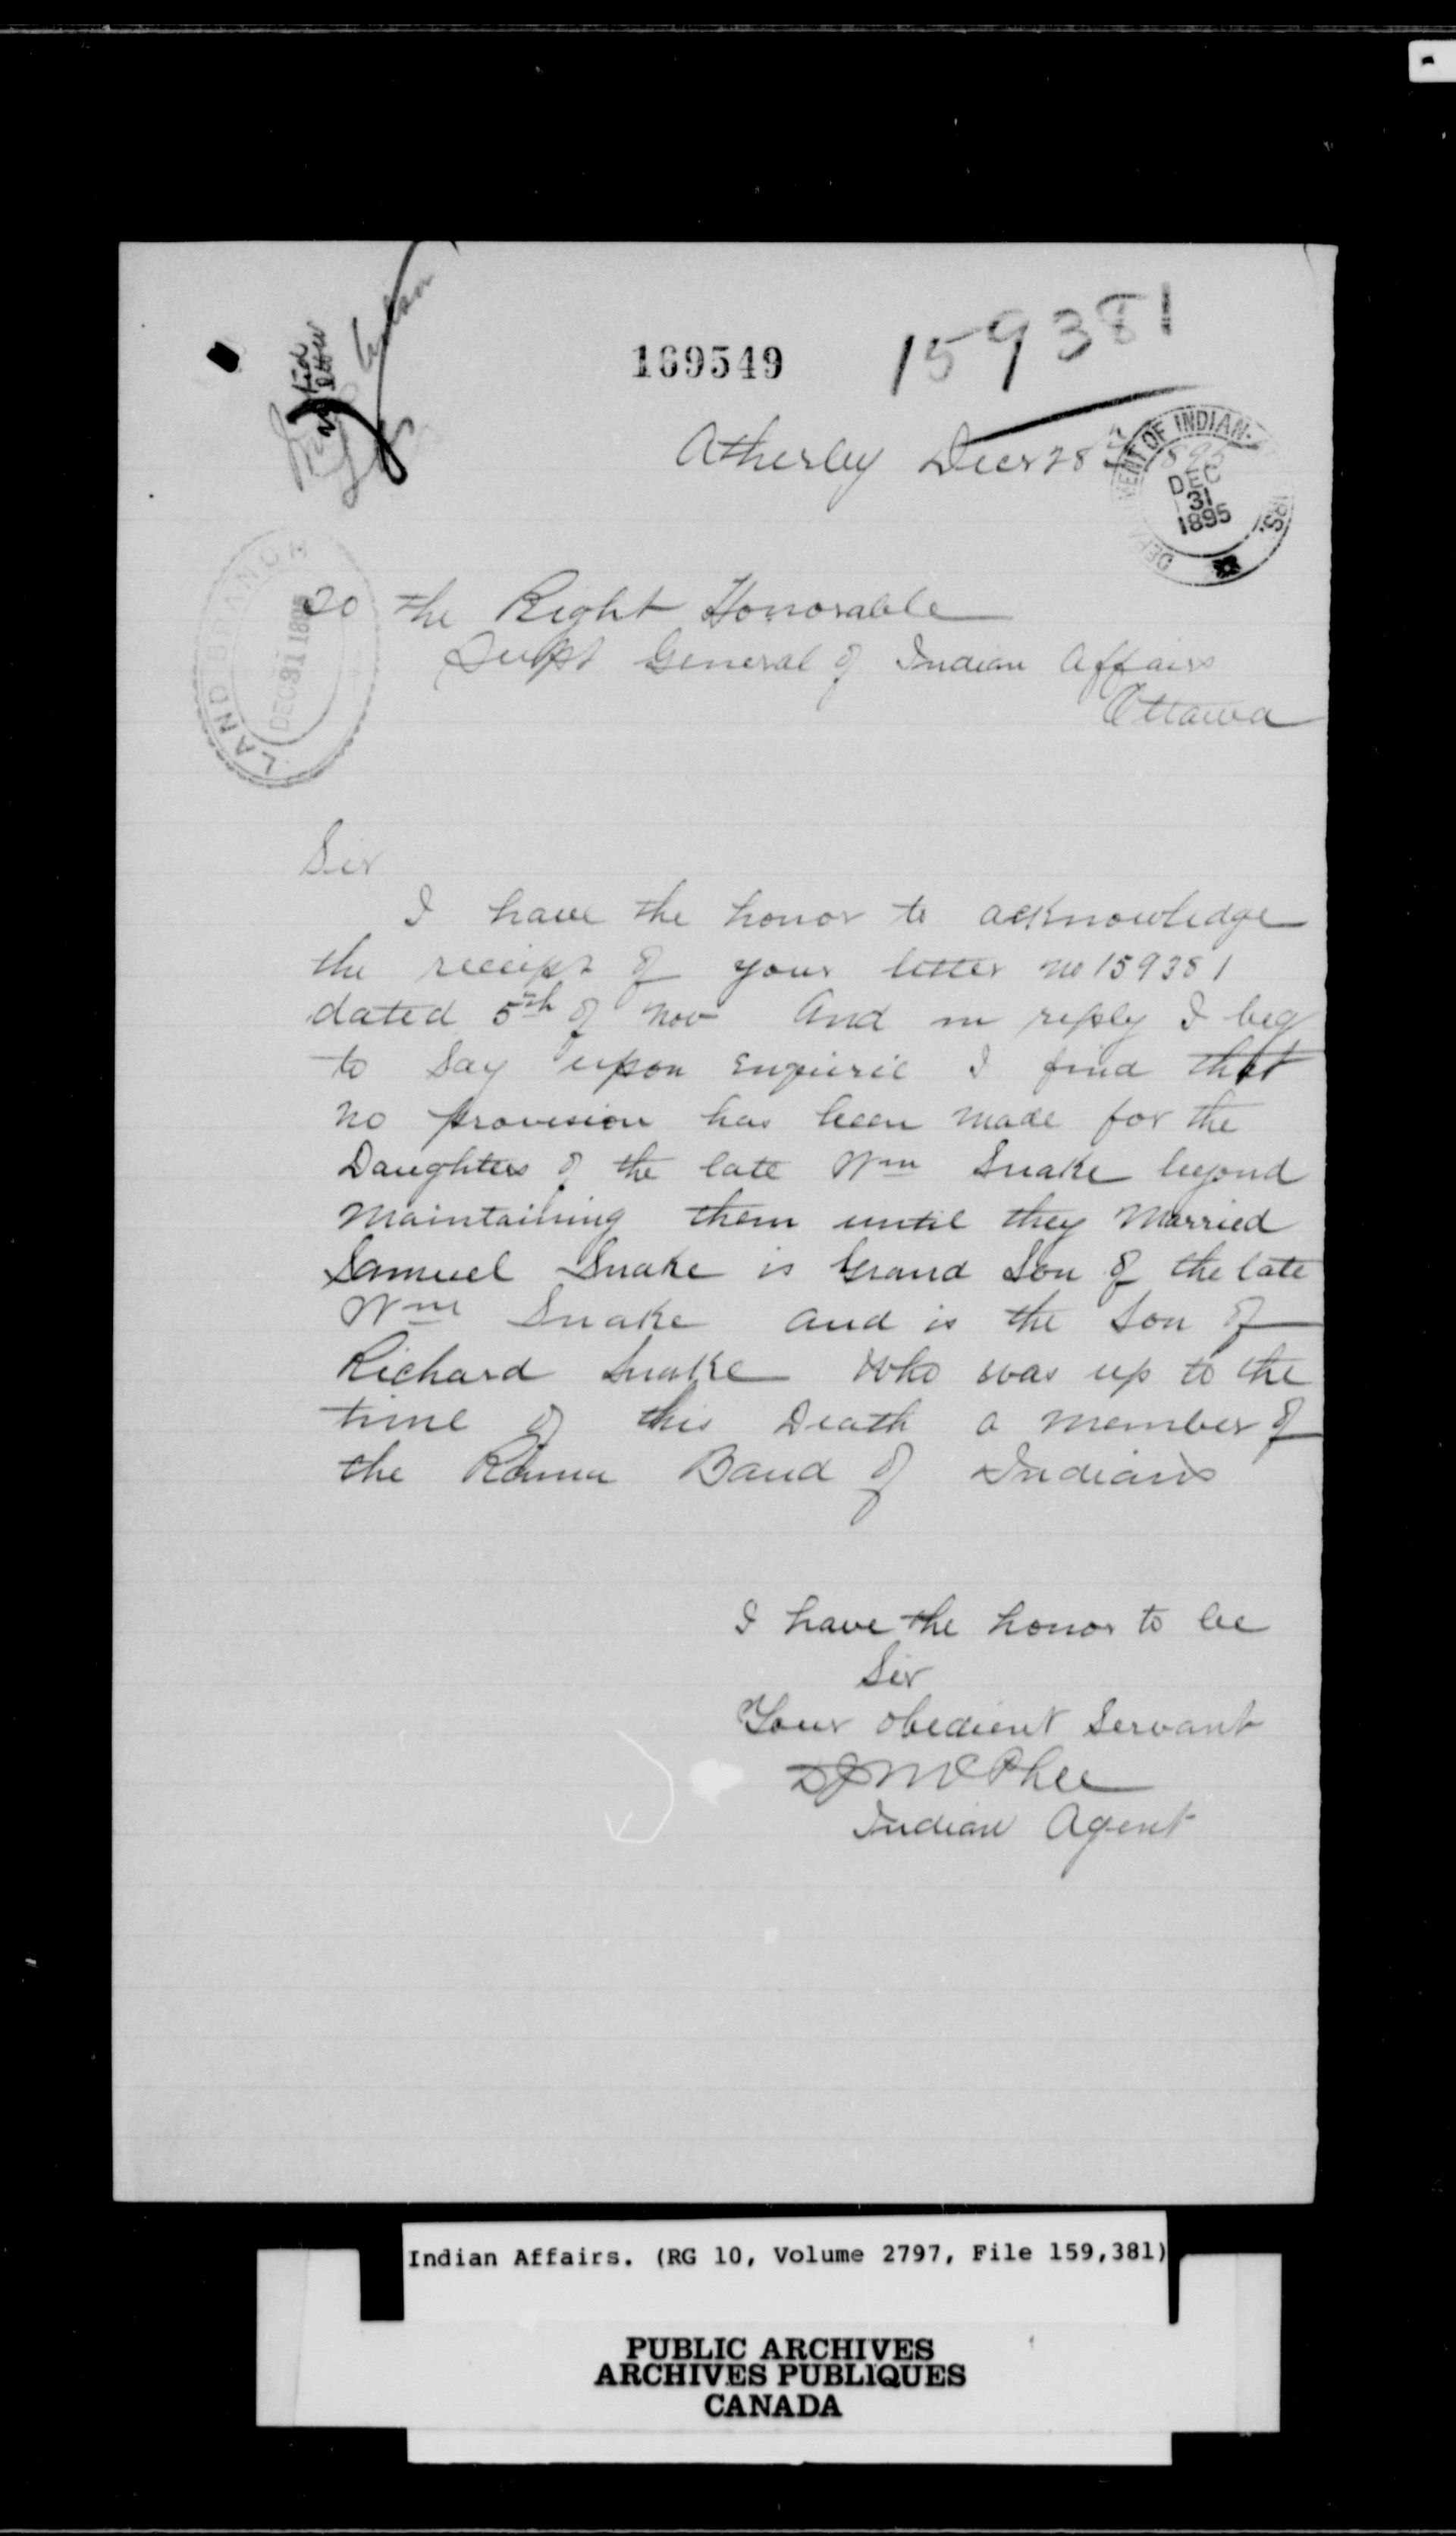 169549
159381
Atherley Decr 28th 1895
DEPARTMENT OF INDIAN AFFAIRS.
DEC
31
1895
LAND BRANCH
DEC 31 1895
To the Right Honorable
Supt General of Indian Affairs
Ottawa
Sir
I have the honor to acknowledge
the receipt of your letter no 159381
dated 5th of Nov And in reply I beg
to Say upon Enquirie I find that
no provision has been made for the
Daughters of the late Wm Snake beyond
Maintaining them until they Married
Samuel Snake is Grand Son of the late
Wm Snake and is the Son of
Richard Snake Who was up to the
time of this Death a member of
the Rama Band of Indians
I have the honor to be
Sir
Your obedient Servant
DJ McPhee
Indian Agent
Indian Affairs. (RG 10, Volume 2797, File 159,381)
PUBLIC ARCHIVES
ARCHIVES PUBLIQUES
CANADA